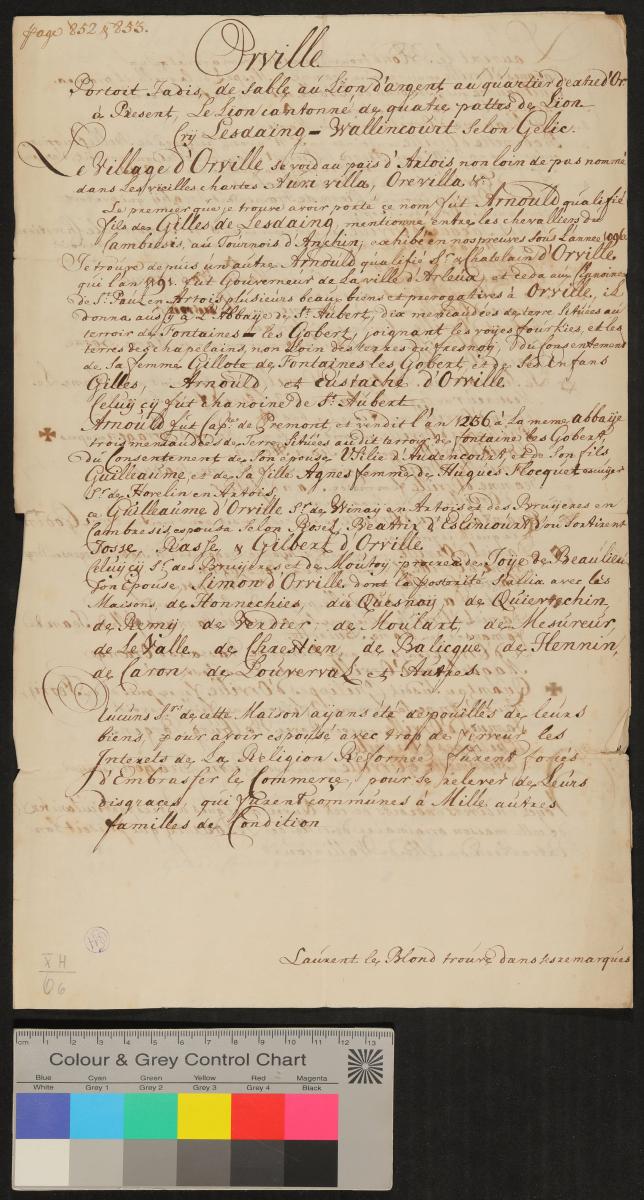 page 852 & 853.
Orville
Portoit Jadis, de sable au Lion d'argent au quartier dextre d'Or
à Present, Le Lion cantonné de quatre pattes de Lion
Cry Lesdaing = Wallincourt Selon Gelic.
Le Village d'Orville se void au païs d'Artois non loin de pas nommé
dans Les vieilles chartes Auri villa, Orevilla, &c.
Le premier que je trouve avoir porté ce nom fut Arnould qualifié
fils de Gilles de Lesdaing mentionné entre les chevalliers du
Cambresis, au Tournois d'Anchin, exhibé en nos preuves sous l'année 1096
Je trouve depuis un autre Arnould qualifié Sr. & Chatelain d'Orville
qui l'an 1191 fut Gouverneur de La ville d'Arleux et ceda aux Chanoines
de St. Paul en Artois plusieurs beaux biens et prerogatives à Orville, il
donna aussy à L'Abbaÿe de St. Aubert, dix mencaudées de terre Scituées au
terroir de Fontaines = les Gobert, joignant les voyes fourkies, et les
terres des chapelains, non Loin des terres du fresnoy, du consentement
de Sa femme Gillote de Fontaines les Gobert et de Ses Enfans
Gilles, Arnould, et Eustache d'Orville
Celuÿ cÿ fut chanoine de St. Aubert
Arnould fut Capne. de Premont et vendit l'an 1236 à La meme abbaÿe
trois mencaudées de Terre Scituées audit terroir de fontaine les Gobert,
du Consentement de Son épouse Vtilie d'Audencourt, et de Son fils
Guilleaume et de sa fille Agnes femme de Hugues Flocquet escuÿer
Sr. de Hovelin en Artois,
ce Guilleaume d'Orville Sr. de Winay en Artois et des Bruÿeres en
Cambresis, espousa Selon Rosel, Beatrix d'Eslincourt d'ou Sortirent
Josse, Rasse & Gilbert d'Orville
Celuÿ cÿ Sr. des Bruÿeres et de Moutoÿ procrea de Joÿe de Beaulieu
Son Epouse, Simon d'Orville dont La Posterité S'allia avec les
Maisons, de Honnechies, du Quesnoÿ, de Quievrechin,
de Remÿ, de Verdier, de Moulart, de Mesureur,
de Le Valle, de Chrestien, de Balicque, de Hennin,
de Caron, de Louverval et Autres.
Aucuns Srs. de cette Maison aÿans été depouillés de leurs
biens, pour avoir espousé avec trop de ferveur les
Interets de La Religion Reformée, furent forcés
d'Embrasser le Commerce, pour se relever de Leurs
disgraces, qui furent communes à Mille autres
familles de Condition
Laurent le Blond trouvé dans ses remarques
XH
06
cm 1 2 3 4 5 6 7 8 9 10 11 12 13
Colour & Grey Control Chart
Blue Cyan Green Yellow Red Magenta
White Grey 1 Grey 2 Grey 3 Grey 4 Black